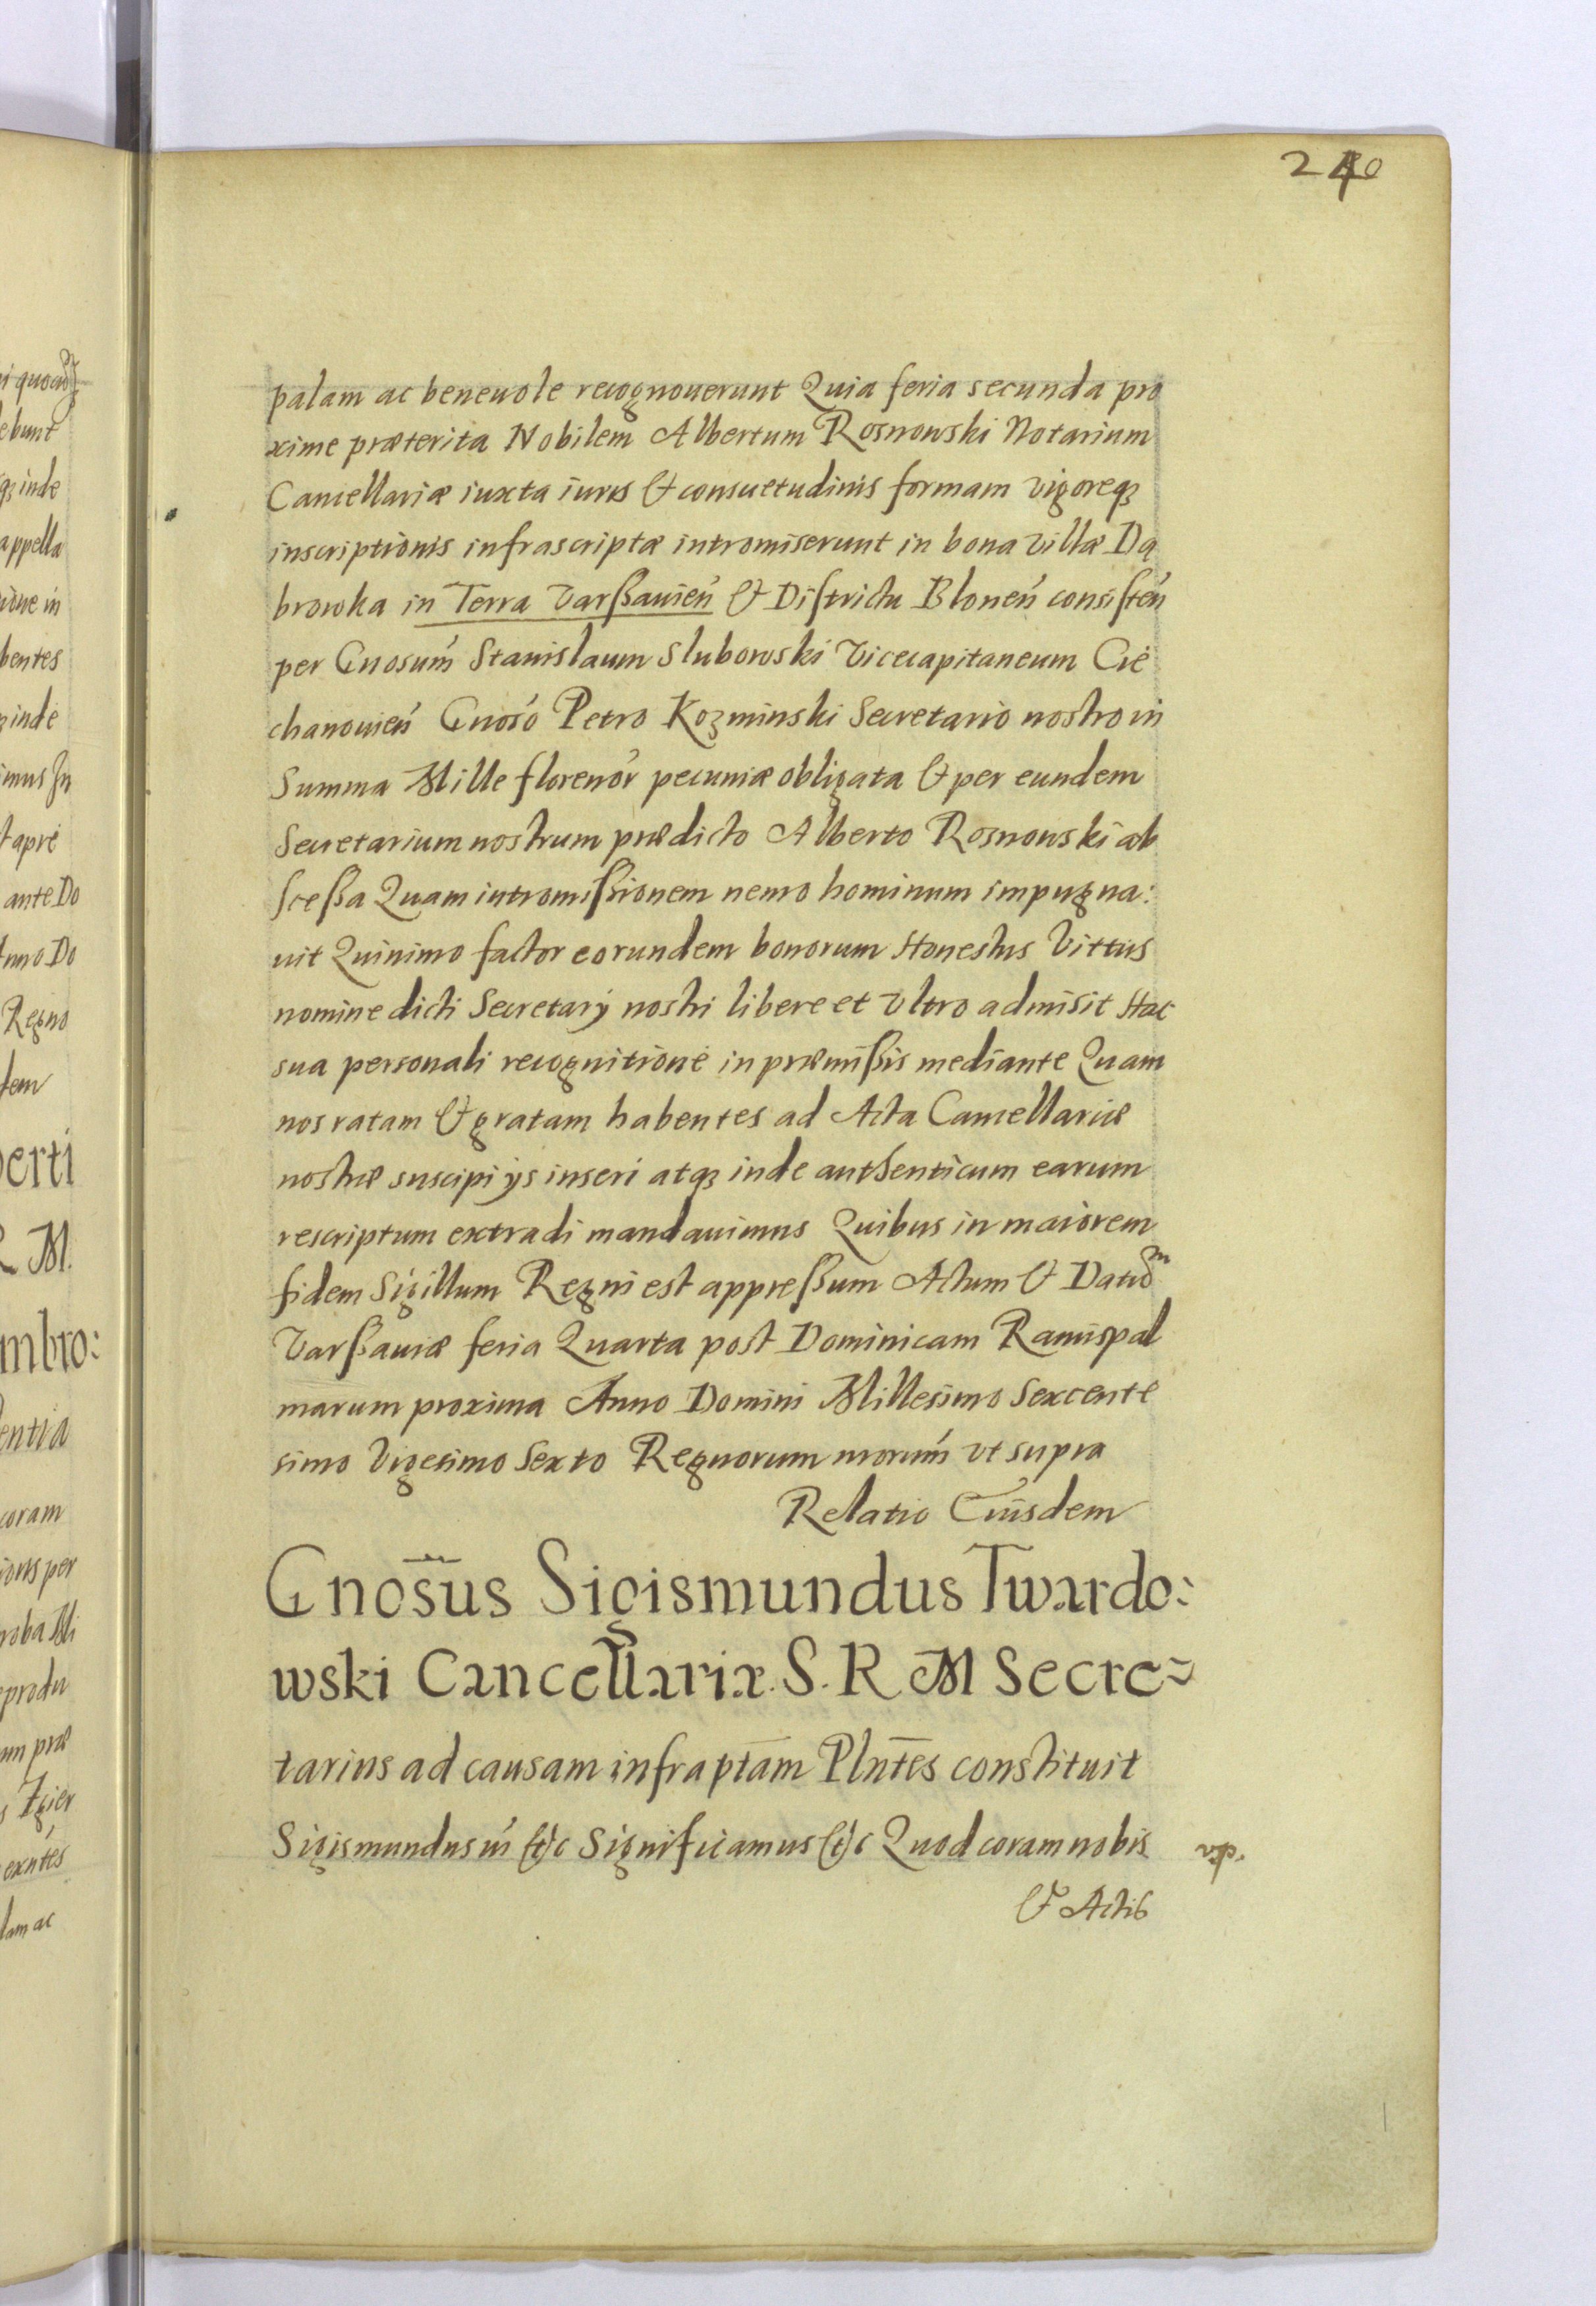 240
palam ac beneuole recognouerunt Quia feria secunda pro
xime præterita Nobilem Albertum Rosnowski Notarium
Cancellariæ iuxta iuris & consuetudinis formam vigoreqȝ
inscriptionis infrascriptæ intromiserunt in bona villæ Dą
browka in Terra Varßauień & Districtu Bloneń consisteń
per Gnosum̃ Stanislaum Slubowski Vicecapitaneum Cie
chanouień Gnoso Petro Kozminski Secretario nostro in
Summa Mille florenor pecuniæ obligata & per eundem
Secretarium nostrum prædicto Alberto Rosnowski ab
sceßa Quam intromißionem nemo hominum impugna:
uit Quinimo factor eorundem bonorum Honestus Vittus
nomine dicti Secretarÿ nostri libere et vltro admisit Hac
sua personali recognitione in præmißis mediante Quam
nos ratam & gratam habentes ad Acta Cancellariæ
nostræ suscipi ÿs inseri atqȝ inde authenticum earum
rescriptum extradi mandauimus Quibus in maiorem
fidem Sigillum Regni est appreßum Actum & Datum
Varßauiæ feria Quarta post Dominicam Ramispal
marum proxima Anno Domini Millesimo Sexcente
simo Vigesimo Sexto Regnorum nrorum̃ vt supra
Relatio Eiusdem
Gnosus Sigismundus Twardo:
wski Cancellariæ. S. R M Secre-
tarius ad causam infraptam Plntes constituit
Sigismundus iii &c Significamus &c Quod coram nobis
& Actis
i quocuqȝ
ebunt
qȝ inde
appella
ione in
bentes
inde
imus In
ante Do
nno Do
Regno
dem
berti
M.
mbro:
entia
coram
ionis per
roba Mi
produ
um præ
exntes
lam ac